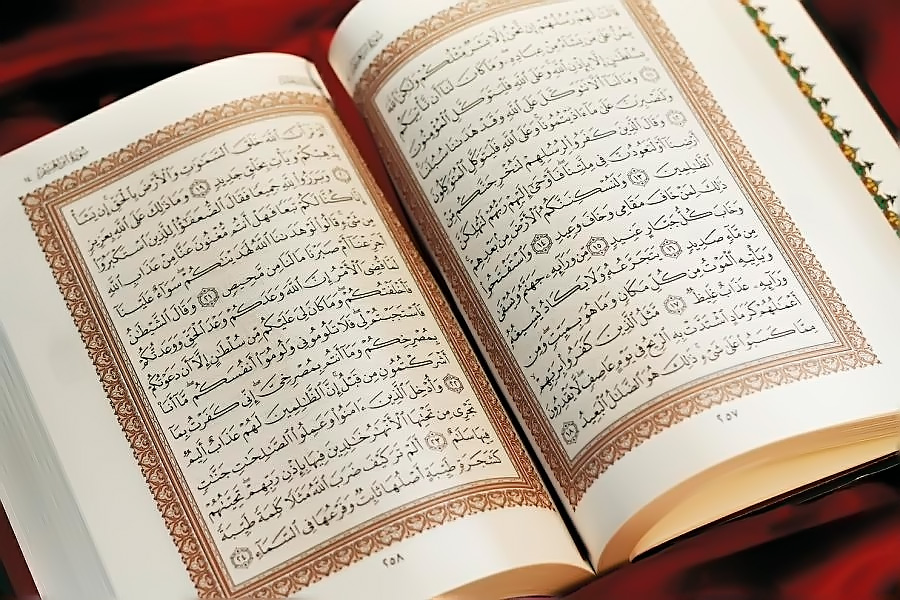 قَالَتْ لَهُمْ رُسُلُهُمْ إِن نَّحْنُ إِلَّا بَشَرٌ مِّثْلُكُمْ وَلَٰكِنَّ ٱللَّهَ
يَمُنُّ عَلَىٰ مَن يَشَآءُ مِنْ عِبَادِهِۦ وَمَا كَانَ لَنَآ أَن نَّأْتِيَكُم
بِسُلْطَٰنٍ إِلَّا بِإِذْنِ ٱللَّهِ وَعَلَى ٱللَّهِ فَلْيَتَوَكَّلِ ٱلْمُؤْمِنُونَ
١١ وَمَا لَنَآ أَلَّا نَتَوَكَّلَ عَلَى ٱللَّهِ وَقَدْ هَدَىٰنَا سُبُلَنَا
وَلَنَصْبِرَنَّ عَلَىٰ مَآ ءَاذَيْتُمُونَا وَعَلَى ٱللَّهِ فَلْيَتَوَكَّلِ ٱلْمُتَوَكِّلُونَ
١٢ وَقَالَ ٱلَّذِينَ كَفَرُوا۟ لِرُسُلِهِمْ لَنُخْرِجَنَّكُم مِّنْ
أَرْضِنَآ أَوْ لَتَعُودُنَّ فِى مِلَّتِنَا فَأَوْحَىٰٓ إِلَيْهِمْ رَبُّهُمْ لَنُهْلِكَنَّ
ٱلظَّٰلِمِينَ ١٣ وَلَنُسْكِنَنَّكُمُ ٱلْأَرْضَ مِنۢ بَعْدِهِمْ
ذَٰلِكَ لِمَنْ خَافَ مَقَامِى وَخَافَ وَعِيدِ ١٤ وَٱسْتَفْتَحُوا۟
وَخَابَ كُلُّ جَبَّارٍ عَنِيدٍ ١٥ مِّن وَرَآئِهِۦ جَهَنَّمُ وَيُسْقَىٰ
مِن مَّآءٍ صَدِيدٍ ١٦ يَتَجَرَّعُهُۥ وَلَا يَكَادُ يُسِيغُهُۥ
وَيَأْتِيهِ ٱلْمَوْتُ مِن كُلِّ مَكَانٍ وَمَا هُوَ بِمَيِّتٍ وَمِن
وَرَآئِهِۦ عَذَابٌ غَلِيظٌ ١٧ مَّثَلُ ٱلَّذِينَ كَفَرُوا۟ بِرَبِّهِمْ
أَعْمَٰلُهُمْ كَرَمَادٍ ٱشْتَدَّتْ بِهِ ٱلرِّيحُ فِى يَوْمٍ عَاصِفٍ لَّا يَقْدِرُونَ
مِمَّا كَسَبُوا۟ عَلَىٰ شَىْءٍ ذَٰلِكَ هُوَ ٱلضَّلَٰلُ ٱلْبَعِيدُ ١٨
٢٥٧
سُورَةُ إِبْرَاهِيمَ
أَلَمْ تَرَ أَنَّ ٱللَّهَ خَلَقَ ٱلسَّمَٰوَٰتِ وَٱلْأَرْضَ بِٱلْحَقِّ إِن يَشَأْ
يُذْهِبْكُمْ وَيَأْتِ بِخَلْقٍ جَدِيدٍ ١٩ وَمَا ذَٰلِكَ عَلَى ٱللَّهِ بِعَزِيزٍ
٢٠ وَبَرَزُوا۟ لِلَّهِ جَمِيعًا فَقَالَ ٱلضُّعَفَٰٓؤُا۟ لِلَّذِينَ ٱسْتَكْبَرُوٓا۟
إِنَّا كُنَّا لَكُمْ تَبَعًا فَهَلْ أَنتُم مُّغْنُونَ عَنَّا مِنْ عَذَابِ ٱللَّهِ
مِن شَىْءٍ قَالُوا۟ لَوْ هَدَىٰنَا ٱللَّهُ لَهَدَيْنَٰكُمْ سَوَآءٌ عَلَيْنَآ
أَجَزِعْنَآ أَمْ صَبَرْنَا مَا لَنَا مِن مَّحِيصٍ ٢١ وَقَالَ ٱلشَّيْطَٰنُ
لَمَّا قُضِىَ ٱلْأَمْرُ إِنَّ ٱللَّهَ وَعَدَكُمْ وَعْدَ ٱلْحَقِّ وَوَعَدتُّكُمْ
فَأَخْلَفْتُكُمْ وَمَا كَانَ لِىَ عَلَيْكُم مِّن سُلْطَٰنٍ إِلَّآ أَن دَعَوْتُكُمْ
فَٱسْتَجَبْتُمْ لِى فَلَا تَلُومُونِى وَلُومُوٓا۟ أَنفُسَكُم مَّآ أَنَا۠
بِمُصْرِخِكُمْ وَمَآ أَنتُم بِمُصْرِخِىَّ إِنِّى كَفَرْتُ بِمَآ
أَشْرَكْتُمُونِ مِن قَبْلُ إِنَّ ٱلظَّٰلِمِينَ لَهُمْ عَذَابٌ أَلِيمٌ
٢٢ وَأُدْخِلَ ٱلَّذِينَ ءَامَنُوا۟ وَعَمِلُوا۟ ٱلصَّٰلِحَٰتِ جَنَّٰتٍ
تَجْرِى مِن تَحْتِهَا ٱلْأَنْهَٰرُ خَٰلِدِينَ فِيهَا بِإِذْنِ رَبِّهِمْ تَحِيَّتُهُمْ
فِيهَا سَلَٰمٌ ٢٣ أَلَمْ تَرَ كَيْفَ ضَرَبَ ٱللَّهُ مَثَلًا كَلِمَةً طَيِّبَةً
كَشَجَرَةٍ طَيِّبَةٍ أَصْلُهَا ثَابِتٌ وَفَرْعُهَا فِى ٱلسَّمَآءِ ٢٤
٢٥٨